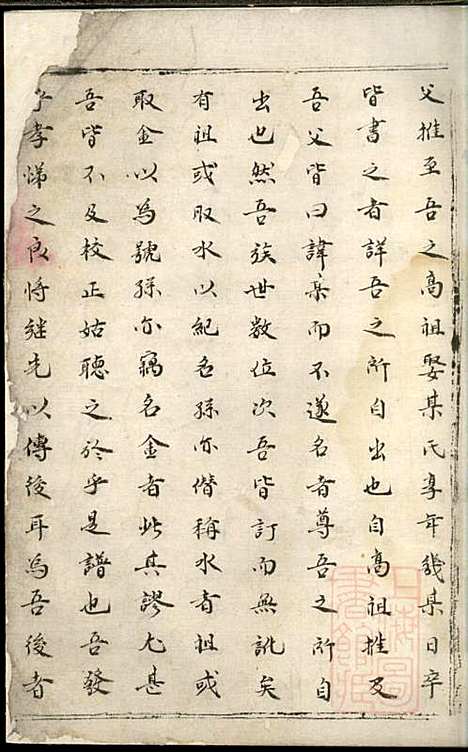 父推至吾之高祖娶某氏享年幾某日卒
皆書之者詳吾之所自出也自高祖推及
吾父皆曰諱某而不遂名者尊吾之所自
出也然吾族世数位次吾皆訂而無訛矣
有祖或取水以紀名孫亦僭稱水者祖或
取金以為號孫亦竊名金者此其謬尤甚
吾皆不及校正姑聽之於乎是譜也吾發
乎孝悌之良将継先以傳後耳為吾後者